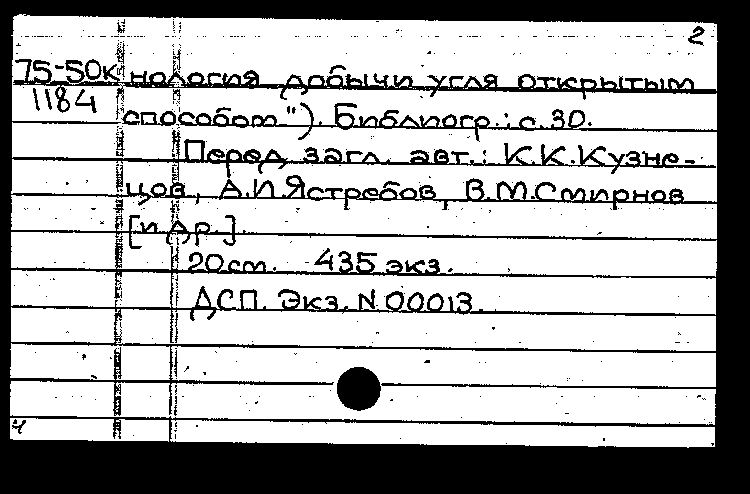 2
75-50к нология добычи угля открытым
1184 способом"). Библиогр.: с. 30.
Перед загл. авт.: К.К.Кузне-
цов, А.И.Ястребов, В.М.Смирнов
[и др.].
20 см. 435 экз.
ДСП. Экз. N 00013.
4